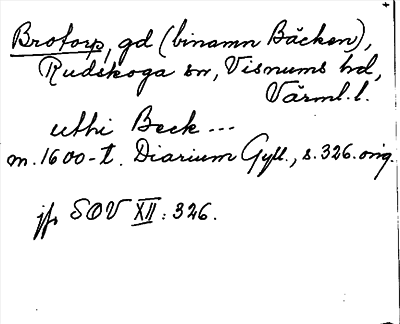 Brotorp, gd (binamn Bäcken),
Rudskoga sn, Visnums hd,
Värml. l.
uthi Beck ...
m. 1600-t. Diarium Gyll., s. 326. orig.
jfr SOV XII: 326.